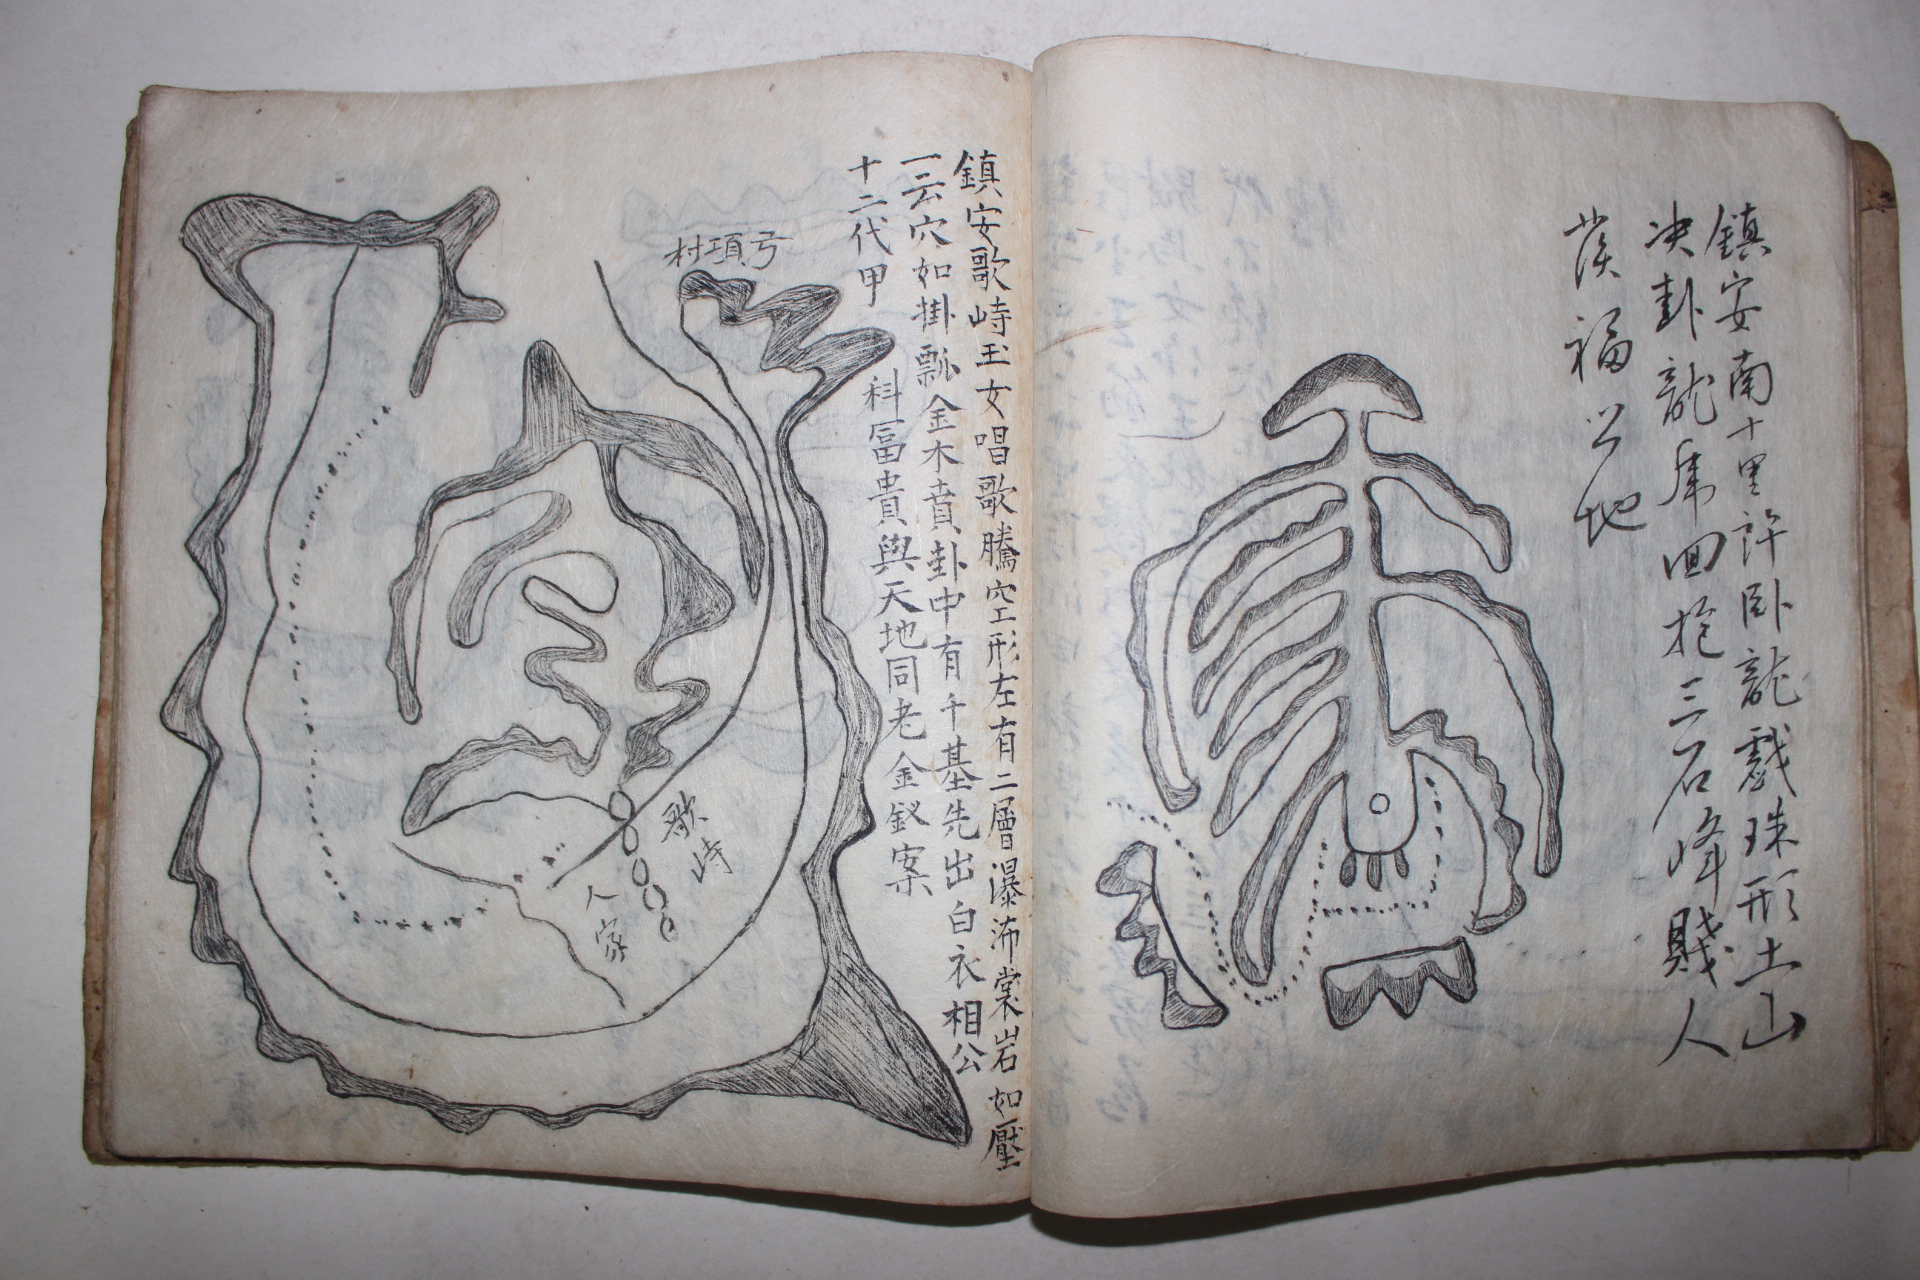 鎮安南十里許卧龍戲珠形土山
决卦龍虎回抱三石峰賤人
發福之地
鎮安歌峙玉女唱歌騰空形左有二層瀑沛裳岩如壓
一云穴如掛瓢金木賁卦中有千基先出白衣相公
十二代甲科冨貴與天地同老金釵案
弓項村
歌峙
人家